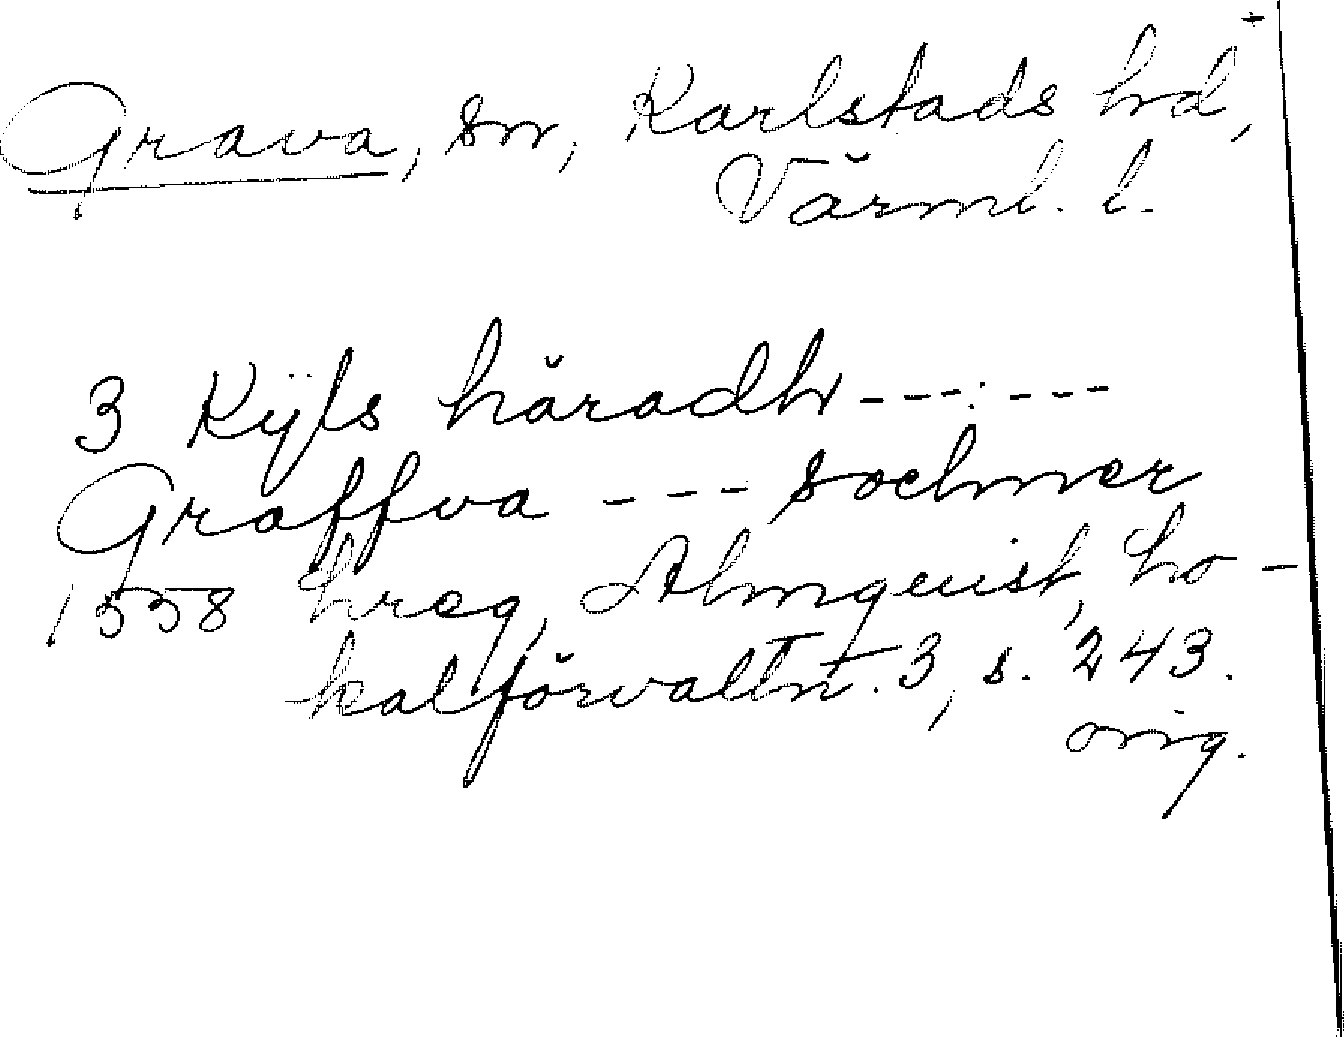 Grava, sn, Karlstads hd, +
Värml. l.
3 Kÿls häradh ------
Graffva --- sochner
1558 hreg, Almquist, Lo-
kalförvaltn. 3, s. 243.
orig.